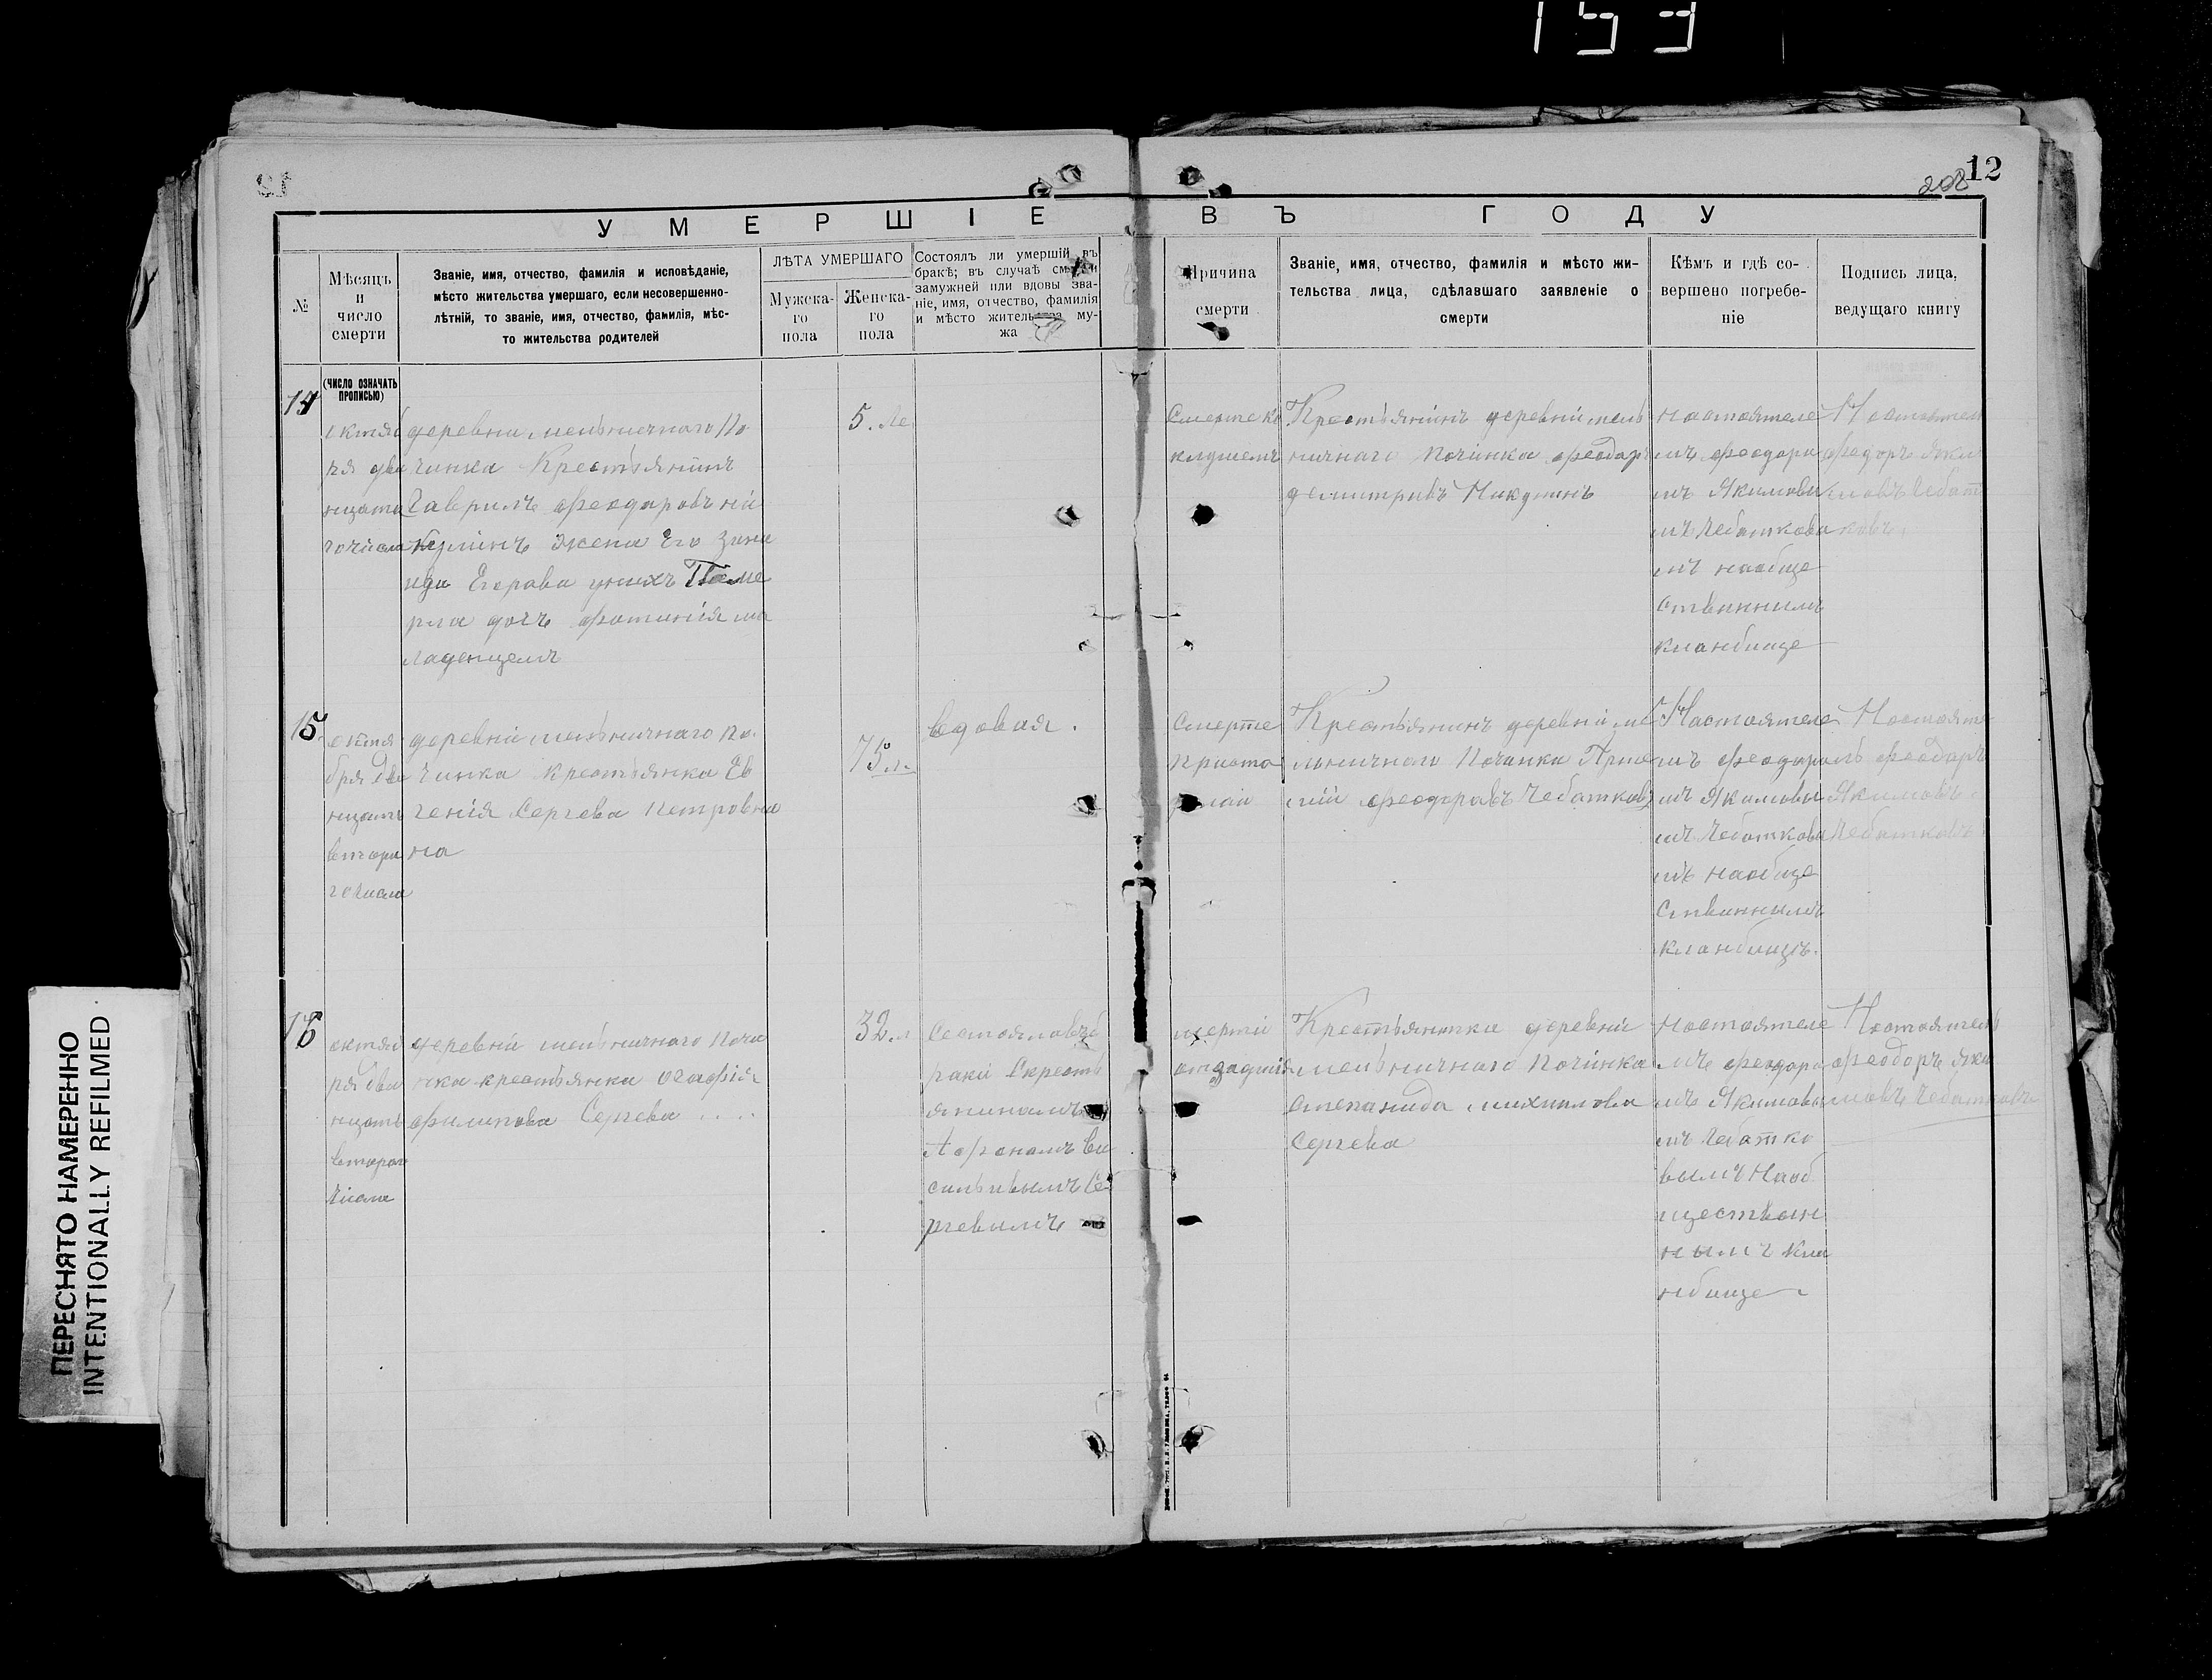 153
12
208
УМЕРШІЕ ВЪ ГОДУ
№
Мѣсяцъ
и
число
смерти
Званіе, имя, отчество, фамилія и исповѣданіе,
мѣсто жительства умершаго, если несовершенно-
лѣтній, то званіе, имя, отчество, фамилія, мѣс-
то жительства родителей
ЛѢТА УМЕРШАГО
Мужска-
го
пола
Женска-
го
пола
Состоялъ ли умершій въ
бракѣ; въ случаѣ смерти
замужней или вдовы зва-
ніе, имя, отчество, фамилія
и мѣсто жительства му-
жа
Причина
смерти
Званіе, имя, отчество, фамилія и мѣсто жи-
тельства лица, сдѣлавшаго заявленіе о
смерти
Кѣмъ и гдѣ со-
вершено погребе-
ніе
Подпись лица,
ведущаго книгу
(ЧИСЛО ОЗНАЧАТЬ
ПРОПИСЬЮ)
14
октяб
ря два
нцата
го числа
деревни мельничнаго По
чинка Крестьянинъ
Гаврилъ Феодоровъ
жена Его Зина
ида Егорава унихъ Паме
рла дочь Фотинія ма
ладенцемъ
5. ле
Смерте
Крестьянинъ деревни мель
ничнаго Починка Феодаръ
Демитривъ
Настоятеле
мъ Феодора
мъ Якимовы
мъ Чебаткова
мъ наобще
ственнымъ
кланбище
Настоятель
Федоръ Яки
мовъ Чебат
ковъ
15
октя
бря два
нцать
втора
го числа
деревни мельничнаго По
чинка крестьянка Ев
генія Сергева Петровна
на
75 л.
вдовая.
Смерте
приста
Крестьянинъ деревни ме
льничнаго Починка Арте
мій Феодравъ Чебатковъ
Настоятеле
мъ Феодором
мъ Якимовы
мъ Чебаткова
мъ наобще
Ственнымъ
кланбищъ.
Настояте
Феодаръ
Якимовъ
Чебатковъ
16
октяб
ря два
нцать
втораго
Числа
деревни мельничнаго Почи
нка крестьянка огафія
Филипова Сергева
32 л
Состоялавъб
раки Скресть
яниномъ
Афонамъ Ва
сильивымъ Се
ргевымъ
Крестьянка деревни
мельничнаго Починка
Степанида михаилова
Сергева
Настоятеле
мъ Феодора
мъ Якимовы
мъ Чебатко
вымъ Нааб
щественн
нымъ кла
нбище
Настоятель
Феодоръ Яки
мовъ Чебатковъ
ПЕРЕСНЯТО НАМЕРЕННО
INTENTIONALLY REFILMED